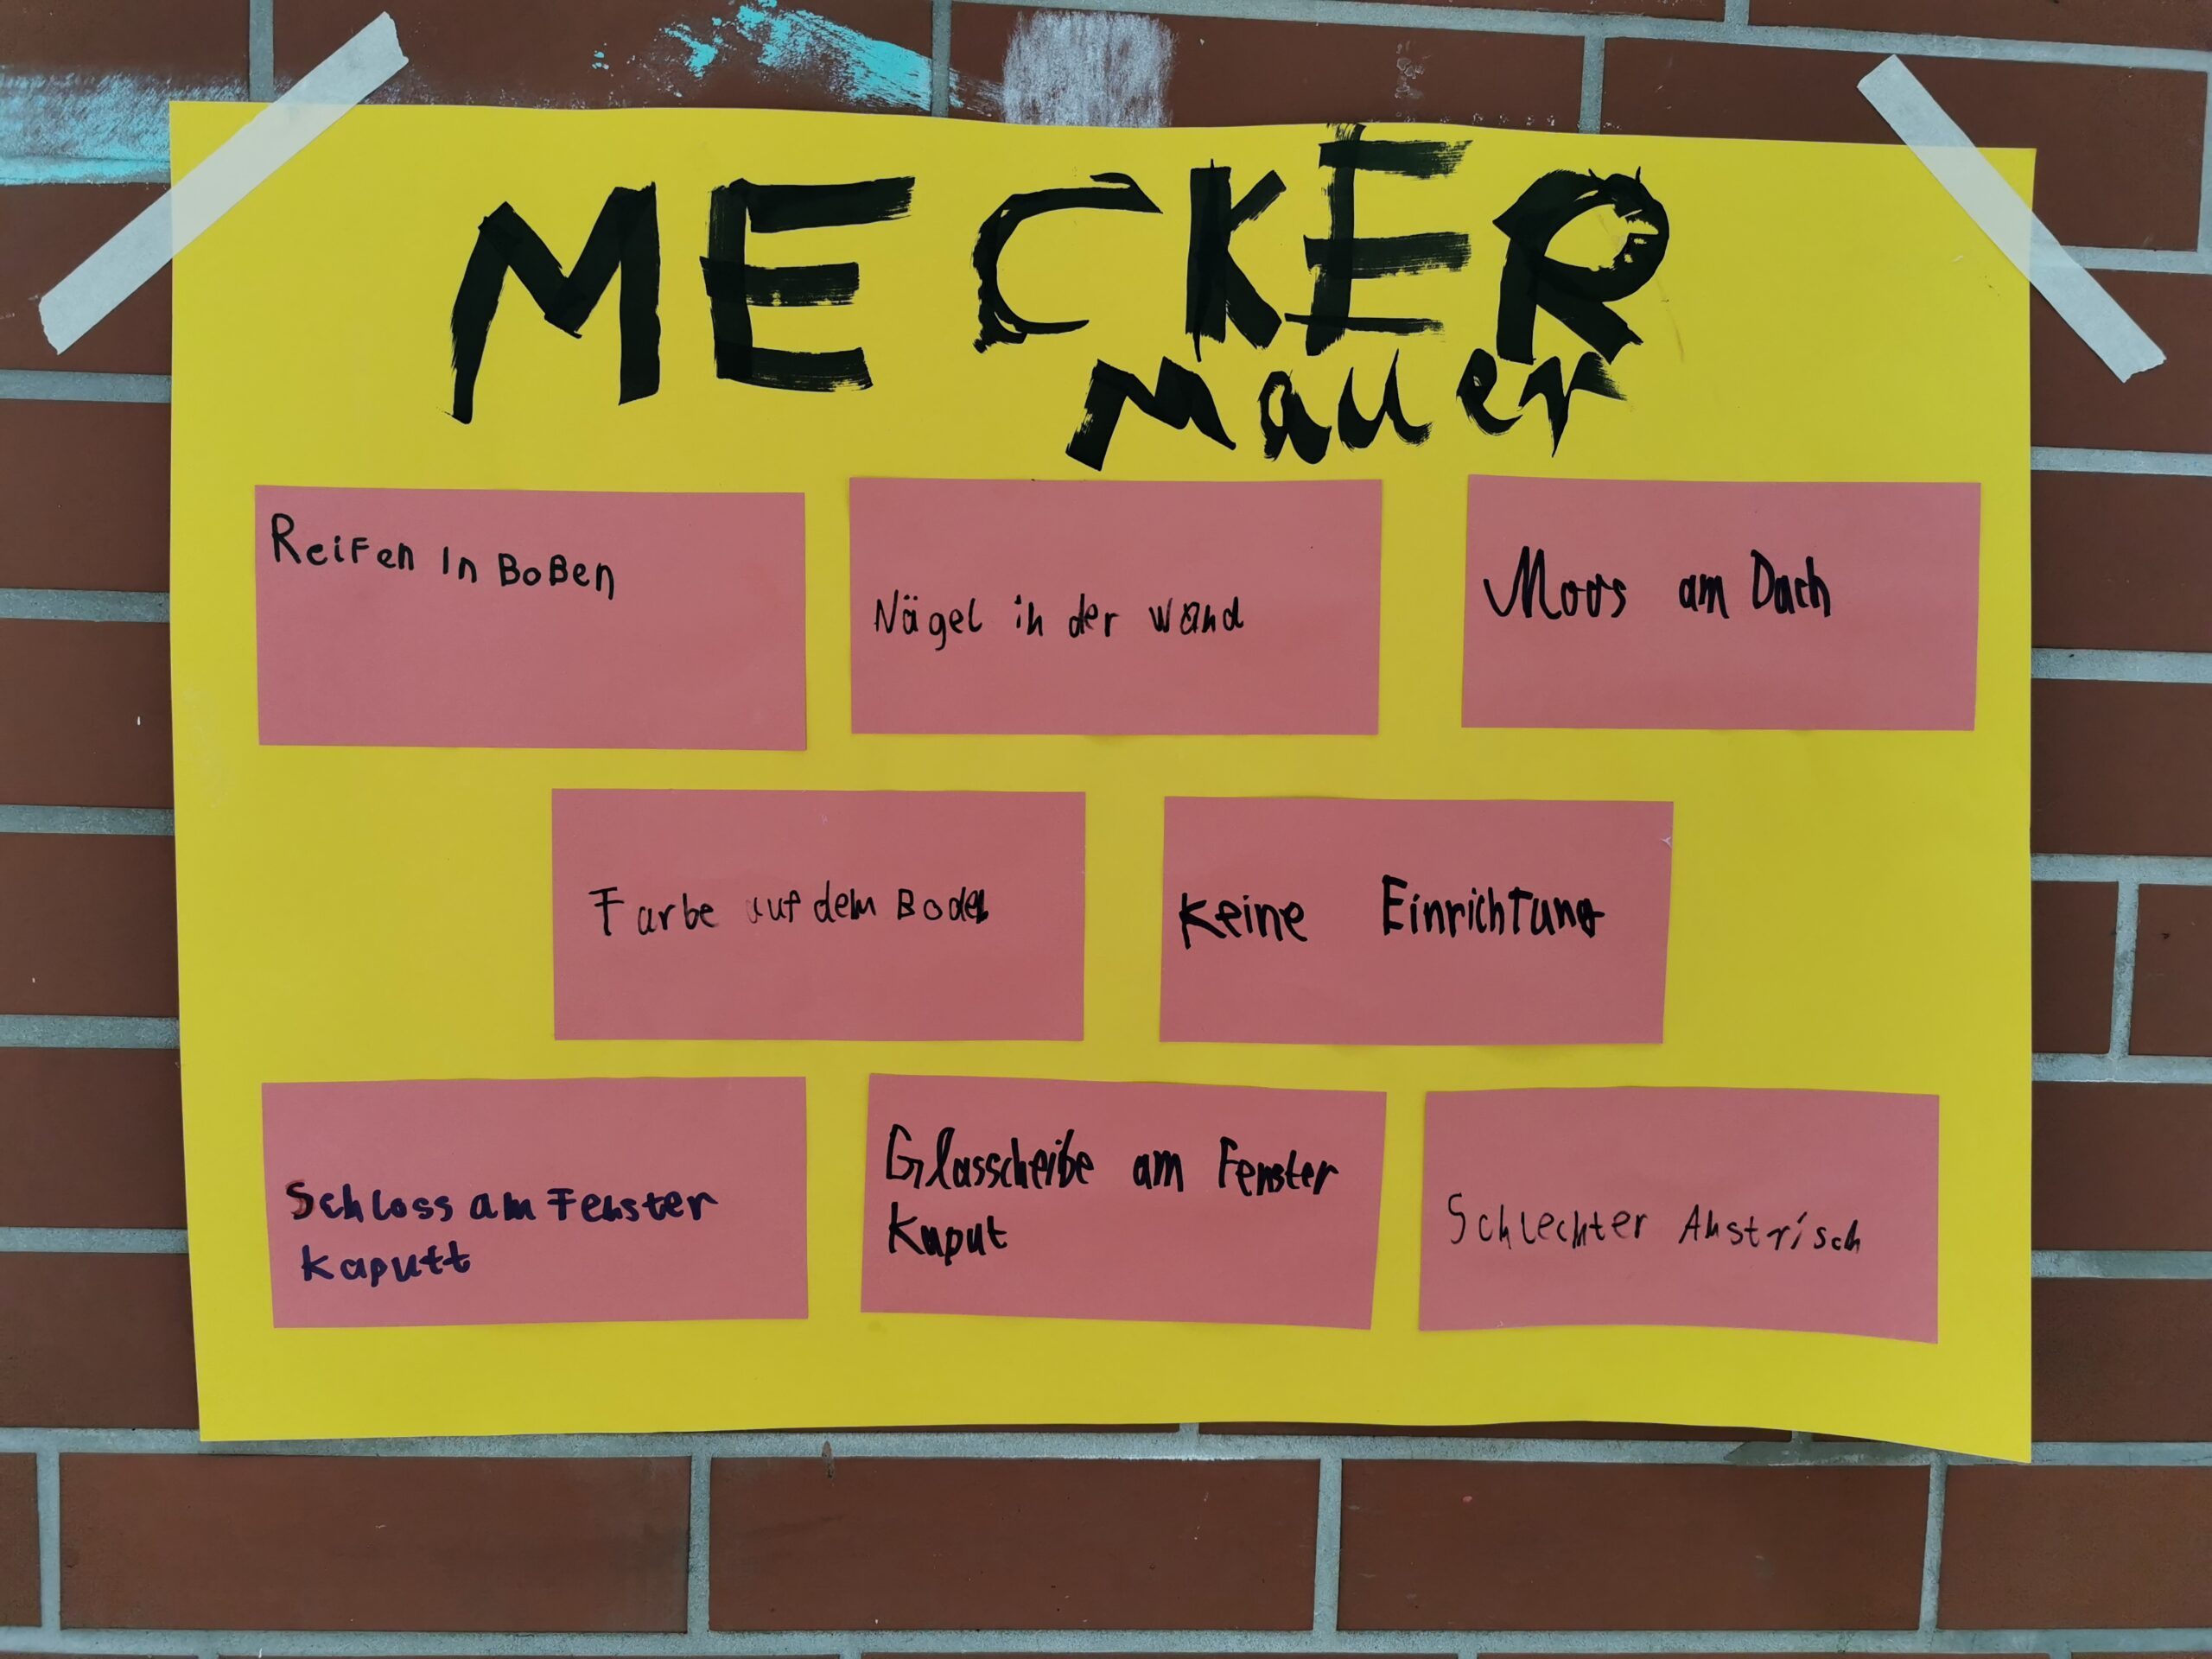 MECKER
mauer
Reifen in BoBen
Nägel in der Wand
Moos am Dach
Farbe auf dem Boden
Keine Einrichtung
Schloss am Fenster
kaputt
Glasscheibe am Fenster
Kaput
Schlechter Anstrisch